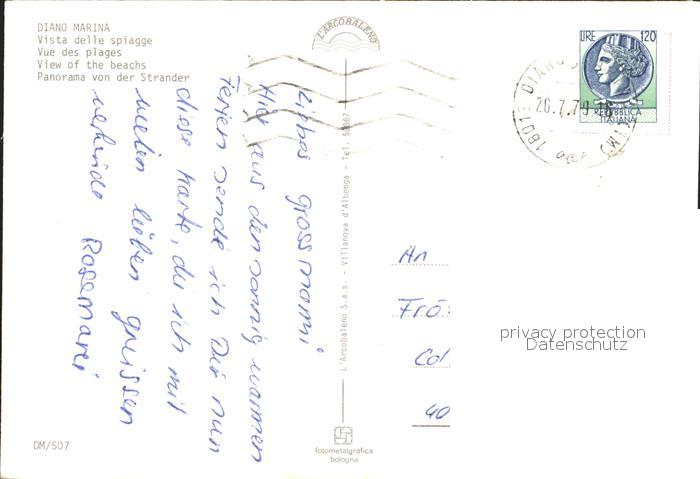 DIANO MARINA
Vista delle spiagge
Vue des plages
View of the beachs
Panorama von der Strander
L'ARCOBALENO
LIRE 120
REPUBBLICA
ITALIANA
18013 DIANO
26.7.79
(IM)
Liebes Grossmami
Hier aus den sonnig warmen
Ferien sende ich Dir nun
diese Karte, die ich mit
vielen lieben grüssen
verbinde Rosemarei
L'Arcobaleno S.a.s. - Villanova d'Albenga - Tel. 58867
An
Frö
Col
40
privacy protection
Datenschutz
DM/507
fotometalgrafica
bologna